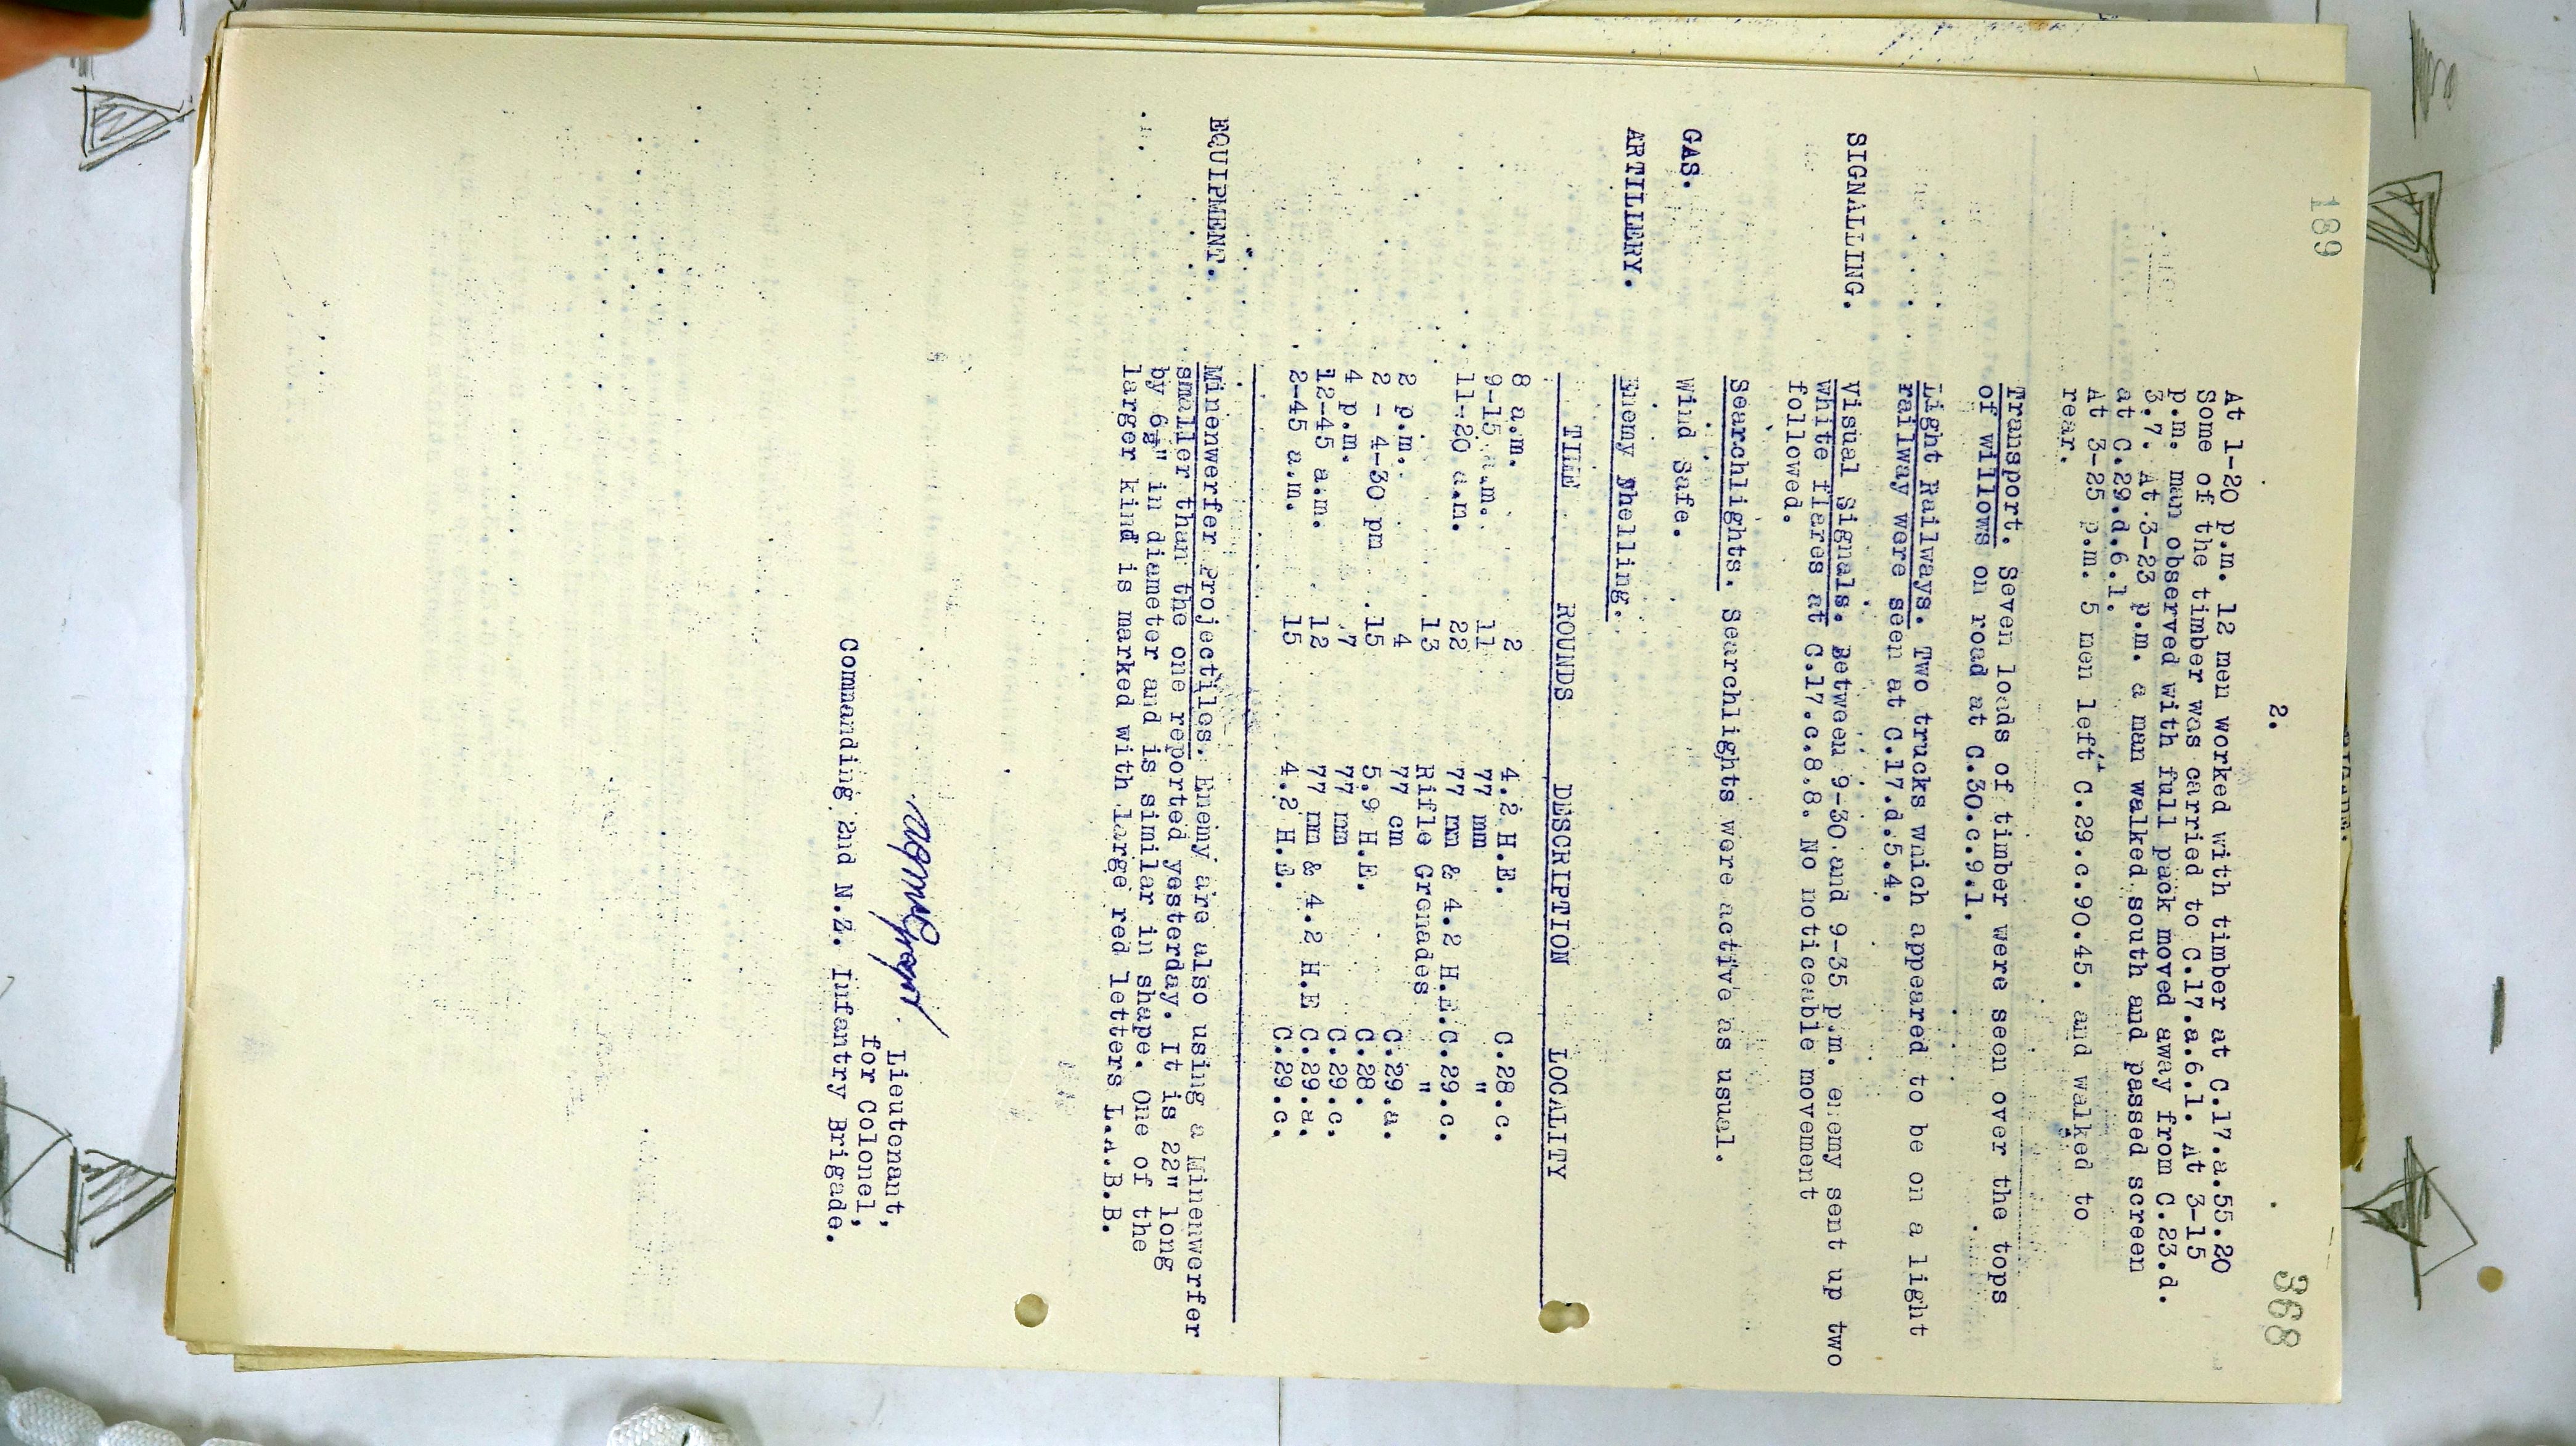 189
2.
368
At 1-20 p.m. 12 men worked with timber at C.17.a.55.20
Some of the timber was carried to C.17.a.6.1. At 3-15
p.m. man observed with full pack moved away from C.23.d.
3.7. At 3-23 p.m. a man walked south and passed screen
at C.29.d.6.1.
At 3-25 p.m. 5 men left C.29.c.90.45. and walked to
rear.
Transport. Seven loads of timber were seen over the tops
of willows on road at C.30.c.9.1.
Light Railways. Two trucks which appeared to be on a light
railway were seen at C.17.d.5.4.
SIGNALLING. Visual Signals. Between 9-30 and 9-35 p.m. enemy sent up two
white flares at C.17.c.8.8. No noticeable movement
followed.
Searchlights. Searchlights were active as usual.
GAS. Wind Safe.
ARTILLERY. Enemy Shelling.
TIME ROUNDS DESCRIPTION LOCALITY
8 a.m. 2 4.2 H.E. C.28.c.
9-15 a.m. 11 77 mm "
11-20 a.m. 22 77 mm & 4.2 H.E. C.29.c.
13 Rifle Grenades "
2 p.m. 4 77 cm C.29.a.
2 - 4-30 pm 15 5.9 H.E. C.28.
4 p.m. 7 77 mm C.29.c.
12-45 a.m. 12 77 mm & 4.2 H.E C.29.a.
2-45 a.m. 15 4.2 H.E. C.29.c.
EQUIPMENT. Minenwerfer Projectiles. Enemy are also using a Minenwerfer
smaller than the one reported yesterday. It is 22" long
by 6½" in diameter and is similar in shape. One of the
larger kind is marked with large red letters L.A.B.B.
Lieutenant,
for Colonel,
Commanding 2nd N.Z. Infantry Brigade.